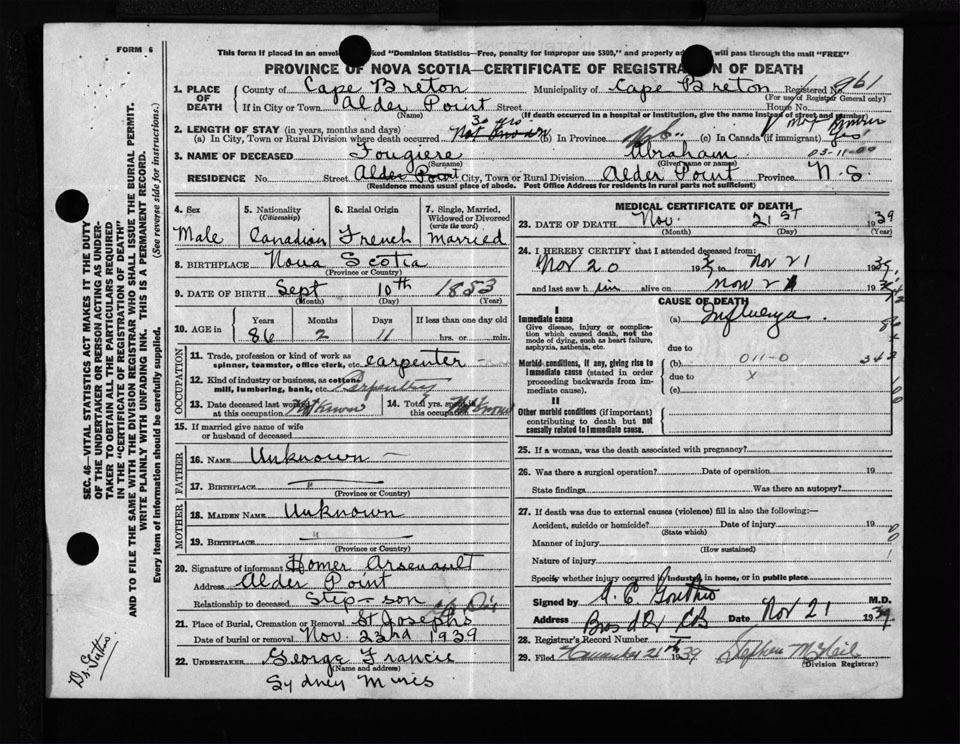 FORM 6
This form if placed in an envelope marked "Dominion Statistics—Free, penalty for improper use $300," and properly will pass through the mail "FREE"
PROVINCE OF NOVA SCOTIA—CERTIFICATE OF REGISTRATION OF DEATH
1. PLACE OF DEATH County of Cape Breton Municipality of Cape Breton Registered No. 961
(For use of Registrar General only)
If in City or Town Alder Point Street House No.
(Name) (If death occurred in a hospital or institution, give the name instead of street and number)
30 yrs.
2. LENGTH OF STAY (in years, months and days)
(a) In City, Town or Rural Division where death occurred Not Known (b) In Province (c) In Canada (if immigrant)
3. NAME OF DECEASED Fougere Abraham 03-11-00
(Surname) (Given name or names)
RESIDENCE No. Street Alder Point City, Town or Rural Division Alder Point Province N. S.
(Residence means usual place of abode. Post Office Address for residents in rural parts not sufficient)
SEC. 46—VITAL STATISTICS ACT MAKES IT THE DUTY
OF THE UNDERTAKER OR PERSON ACTING AS UNDER-
TAKER TO OBTAIN ALL THE PARTICULARS REQUIRED
IN THE "CERTIFICATE OF REGISTRATION OF DEATH"
AND TO FILE THE SAME WITH THE DIVISION REGISTRAR WHO SHALL ISSUE THE BURIAL PERMIT.
WRITE PLAINLY WITH UNFADING INK. THIS IS A PERMANENT RECORD.
Every item of Information should be carefully supplied. (See reverse side for instructions.)
4. Sex Male
5. Nationality (Citizenship) Canadian
6. Racial Origin French
7. Single, Married, Widowed or Divorced (write the word) Married
8. BIRTHPLACE Nova Scotia
(Province or Country)
9. DATE OF BIRTH Sept 10th 1853
(Month) (Day) (Year)
10. AGE in Years Months Days If less than one day old
86 2 11 hrs. or min.
OCCUPATION
11. Trade, profession or kind of work as spinner, teamster, office clerk, etc. Carpenter
12. Kind of industry or business, as cotton mill, lumbering, bank, etc. Carpentry
13. Date deceased last worked at this occupation Not Known
14. Total yrs. spent in this occupation Not Known
15. If married give name of wife or husband of deceased
FATHER
16. NAME Unknown
17. BIRTHPLACE "
(Province or Country)
MOTHER
18. MAIDEN NAME Unknown
19. BIRTHPLACE "
(Province or Country)
20. Signature of informant Homer Arsenault
Address Alder Point
Relationship to deceased Step-son
21. Place of Burial, Cremation or Removal St Joseph's
Date of burial or removal Nov. 23rd 1939
22. UNDERTAKER George Francis
(Name and address)
Sydney Mines
MEDICAL CERTIFICATE OF DEATH
23. DATE OF DEATH Nov. 21st 1939
(Month) (Day) (Year)
24. I HEREBY CERTIFY that I attended deceased from:
Nov 20 1939 to Nov 21 1939,
and last saw him alive on Nov 21 1939
CAUSE OF DEATH
I
Immediate cause
Give disease, injury or complication which caused death, not the mode of dying, such as heart failure, asphyxia, asthenia, etc.
(a) Influenza
due to
Morbid conditions, if any, giving rise to immediate cause (stated in order proceeding backwards from immediate cause).
(b) 011-0
due to x
(c)
II
Other morbid conditions (if important) contributing to death but not causally related to immediate cause.
25. If a woman, was the death associated with pregnancy?
26. Was there a surgical operation? Date of operation 19
State findings Was there an autopsy?
27. If death was due to external causes (violence) fill in also the following:—
Accident, suicide or homicide? Date of injury 19
(State which)
Manner of injury
(How sustained)
Nature of injury
Specify whether injury occurred in industry, in home, or in public place
Signed by M.D.
Address Bras d'Or CB Date Nov 21 1939.
28. Registrar's Record Number
29. Filed November 21th 1939 Stephen McNeil
(Division Registrar)